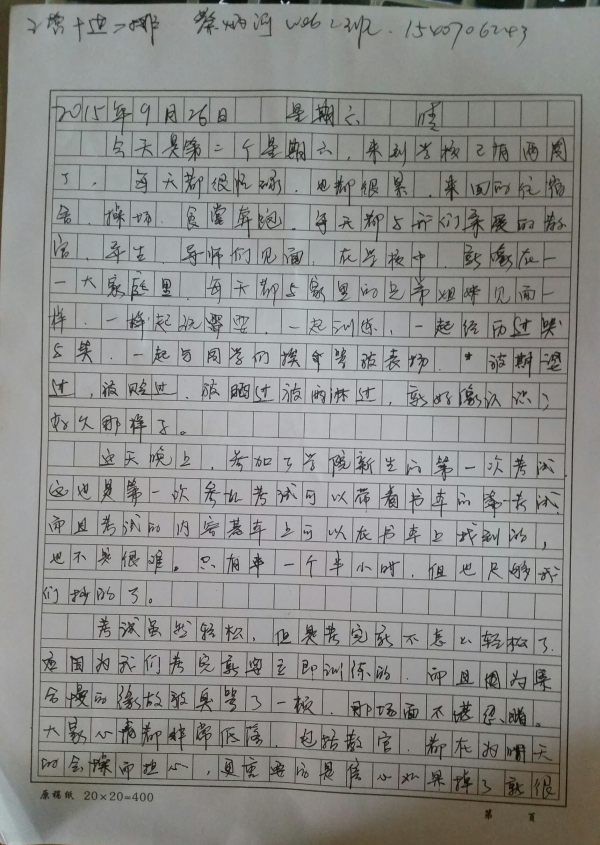 2015年9月26日 星期六 晴
今天是第二个星期六，来到学校已有两周
了，每天都很忙碌，也都很累，来回的往宿
舍、操场、食堂奔跑，每天都与我们亲爱的教
官、导生、导师们见面，在学校中，就像在一
一大家庭里，每天都与家里的兄弟姐妹见面一
样，一起训练，一起经历过哭
与笑，一起与同学们被表扬，被批评
过，被晒过被雨淋过，就好像认识了
好久那样子。
这天晚上，参加了学院新生的第一次考试
这也是第一次参加考试可以带着书本的第一考试
而且考试的内容基本上可以在书本上找到的，
也不是很难。只有一个半小时，但也足够我
们抄的了。
考试虽然轻松，但是考完就不怎么轻松了
因为我们考完就要立即训练的，而且因为集
合慢的缘故被臭骂了一顿，那场面不堪忍睹。
大家心情都非常低落，包括教官，都在为明天
的会操而担心，更重要的是信心如果掉了就很
原稿纸 20×20=400
第 页